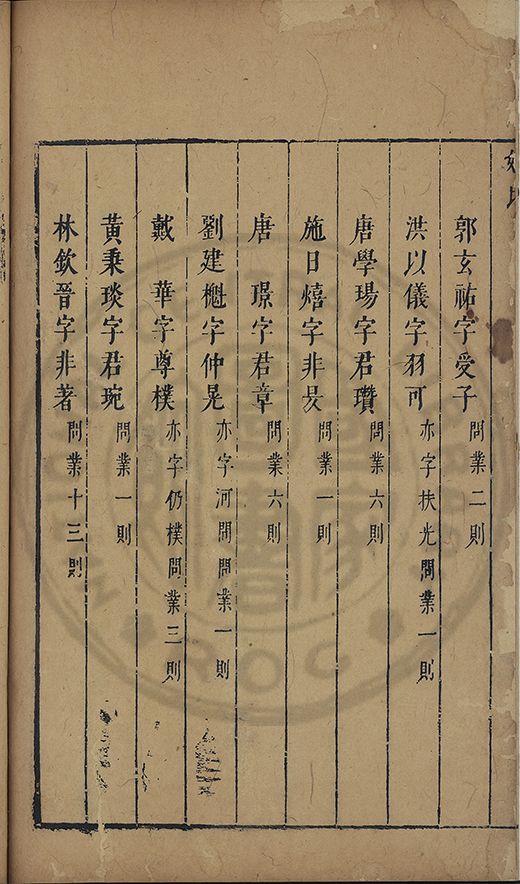 郭玄祐字受子問業二則
洪以儀字羽可亦字扶光問業一則
唐學瑒字君瓚問業六則
施日熺字非炅問業一則
唐璟字君章問業六則
劉建櫆字仲晃亦字河間問業一則
戴華字尊樸亦字仍樸問業三則
黃秉琰字君琬問業一則
林欽晉字非著問業十三則